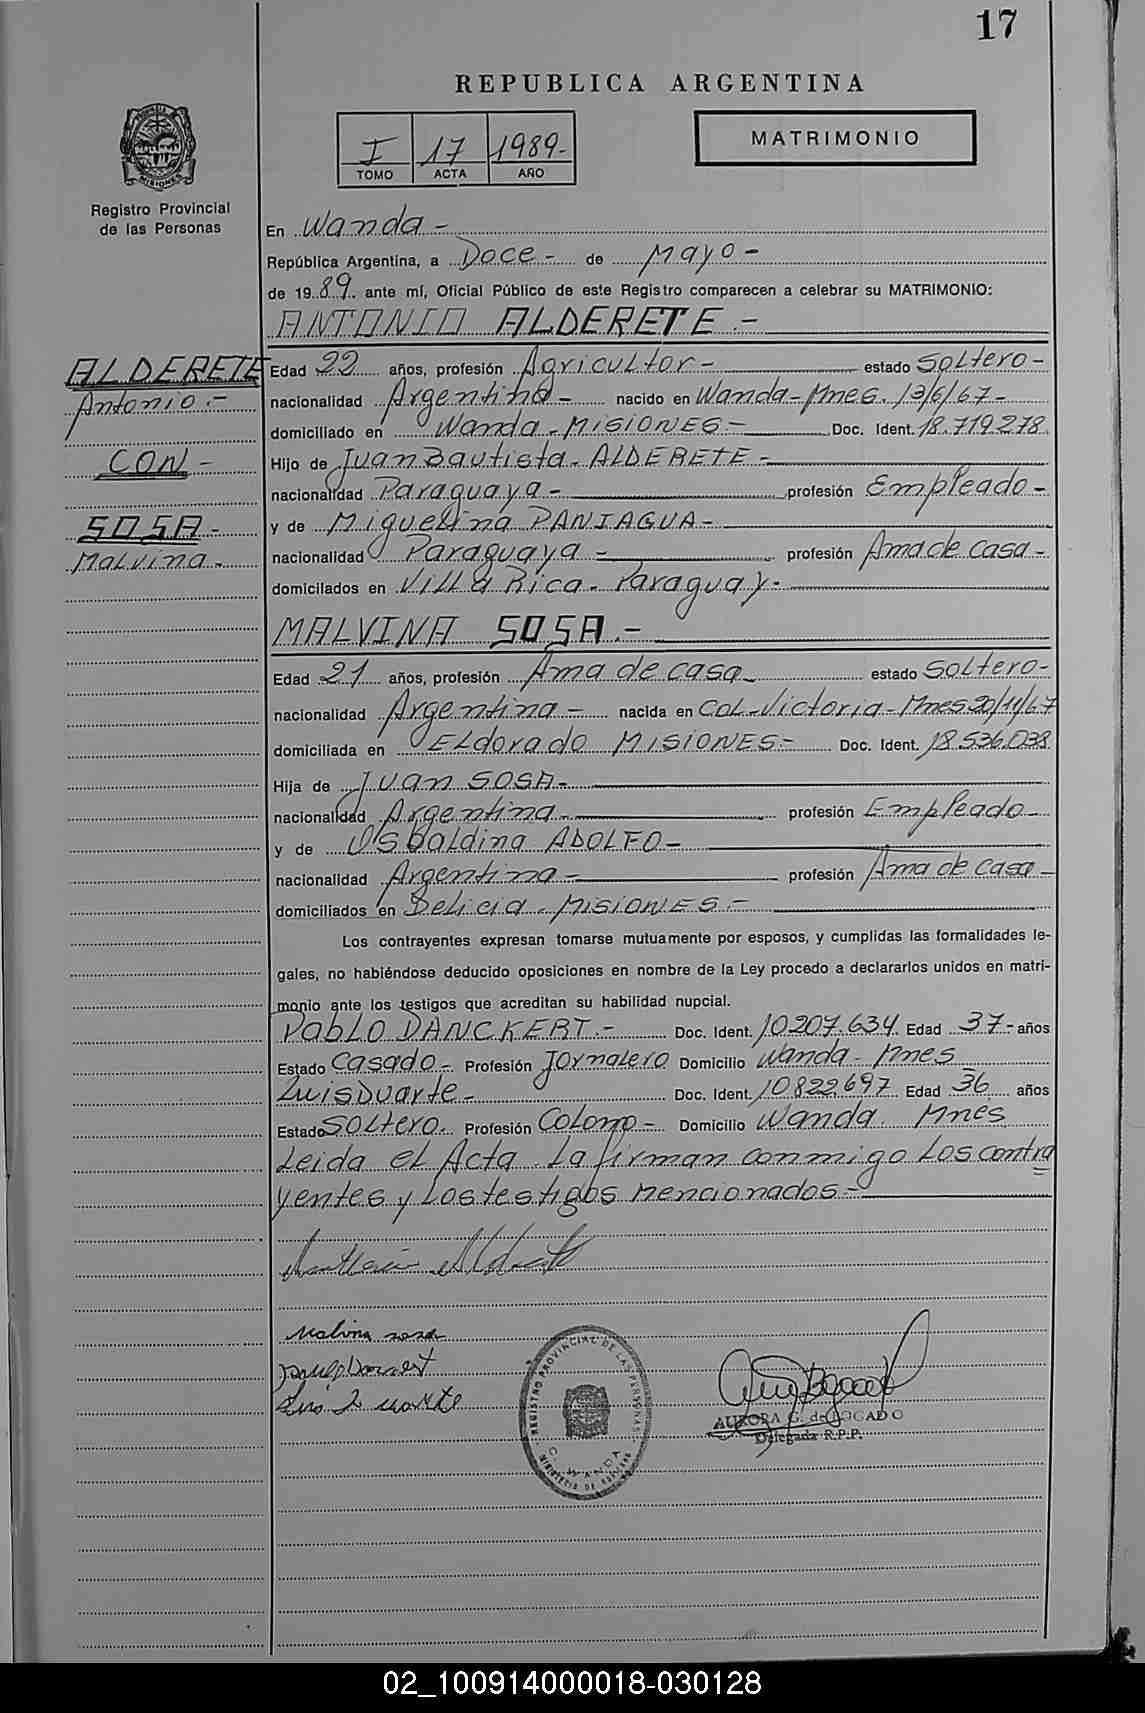 17
REPUBLICA ARGENTINA
I 17 1989-
TOMO ACTA AÑO
MATRIMONIO
MISIONES
Registro Provincial
de las Personas
En Wanda -
República Argentina, a Doce - de Mayo -
de 1989. ante mí, Oficial Público de este Registro comparecen a celebrar su MATRIMONIO:
ANTONIO ALDERETE.-
ALDERETE
Antonio.-
CON -
SOSA -
Malvina.-
Edad 22 años, profesión Agricultor - estado Soltero -
nacionalidad Argentina - nacido en Wanda - Mnes. 13/6/67 -
domiciliado en Wanda - MISIONES - Doc. Ident. 18.719.278
Hijo de Juan Bautista - ALDERETE -
nacionalidad Paraguaya - profesión Empleado -
y de Miguelina PANIAGUA -
nacionalidad Paraguaya - profesión Ama de casa -
domicilados en Villa Rica - Paraguay -
MALVINA SOSA.-
Edad 21 años, profesión Ama de casa - estado Soltero -
nacionalidad Argentina - nacida en Col - Victoria - Mnes 20/11/67
domiciliada en Eldorado MISIONES - Doc. Ident. 18.536.038
Hija de Juan SOSA -
nacionalidad Argentina - profesión Empleado -
y de Osbaldina ADOLFO -
nacionalidad Argentina - profesión Ama de Casa -
domiciliados en Delicia - MISIONES.-
Los contrayentes expresan tomarse mutuamente por esposos, y cumplidas las formalidades le-
gales, no habiéndose deducido oposiciones en nombre de la Ley procedo a declararlos unidos en matri-
monio ante los testigos que acreditan su habilidad nupcial.
Pablo DANCKERT.- Doc. Ident. 10.207.634 Edad 37 - años
Estado Casado - Profesión Jornalero Domicilio Wanda - Mnes
Luis Duarte - Doc. Ident. 10.822.697 Edad 36 años
Estado Soltero. Profesión Colono - Domicilio Wanda. Mnes
Leida el Acta. La firman conmigo Los contra
yentes y Los testigos mencionados -
Malvina sosa
Luis Duarte
REGISTRO PROVINCIAL DE LAS PERSONAS
WANDA
AURORA G. de BOGADO
Delegada R.P.P.
02_100914000018-030128